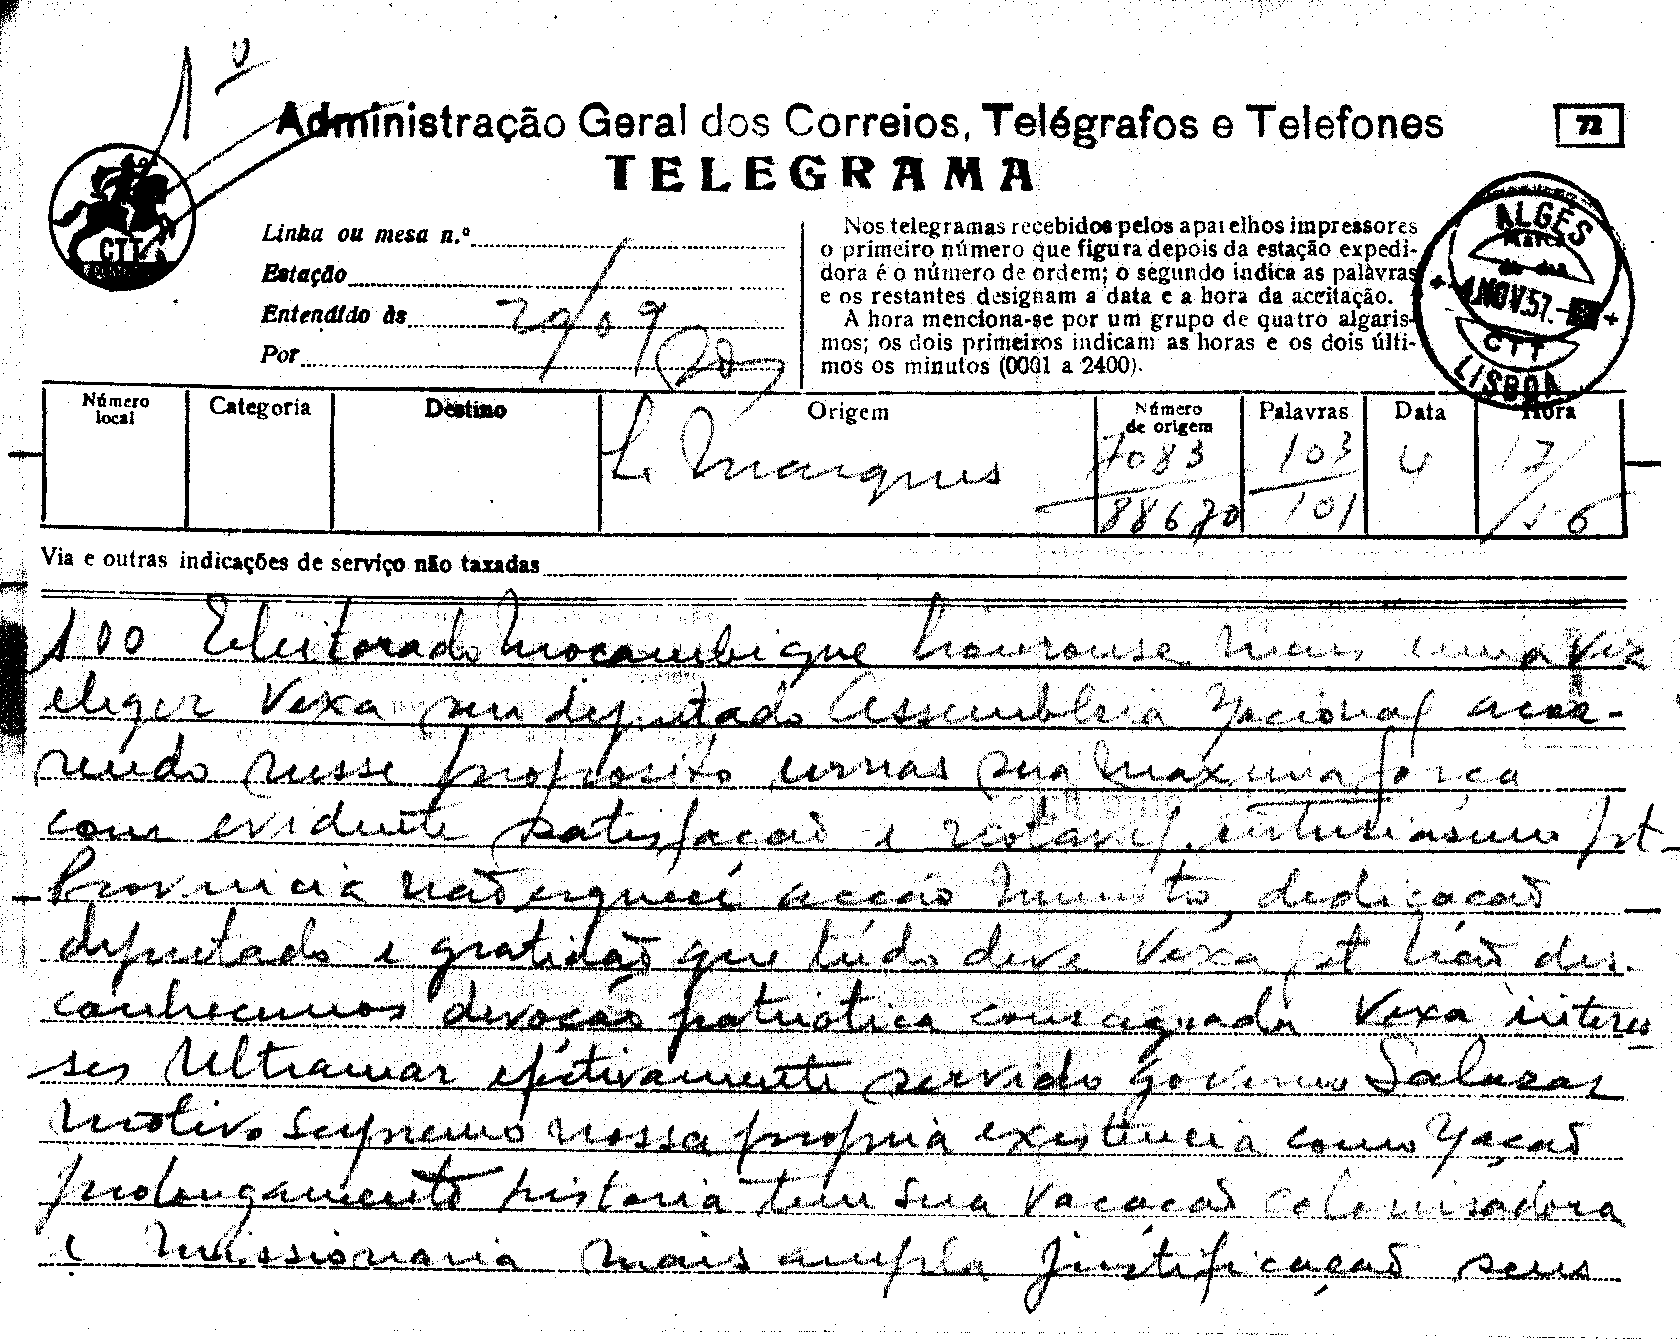 1º
Administração Geral dos Correios, Telégrafos e Telefones
72
TELEGRAMA
CTT
Linha ou mesa n.º
Estação
Entendido às 20/09
Por
Nos telegramas recebidos pelos aparelhos impressores
o primeiro número que figura depois da estação expedi-
dora é o número de ordem; o segundo indica as palavras
e os restantes designam a data e a hora da aceitação.
A hora menciona-se por um grupo de quatro algaris-
mos; os dois primeiros indicam as horas e os dois últi-
mos os minutos (0001 a 2400).
ALGÉS
Marca
do dia
4.NOV.57.
CTT
LISBOA
Número local
Categoria
Destino
Origem
Número de origem
Palavras
Data
Hora
L. Marques
7083
103
4
17/
88670
101
/56
Via e outras indicações de serviço não taxadas
100 Eleitorado Moçambique honrouse mais uma vez
eleger Vexa seu deputado Assembleia Nacional acor-
rendo nesse proposito urnas sua maxima força
com evidente satisfação e notavel entusiasmo pt
Provincia não esquece acção Ministo, dedicação
deputado e gratidão que tudo deve Vexa pt não des-
conhecemos devoção patriotica consagrada Vexa interes
ses Ultramar efectivamente servido governo Salazar
motivo supremo nossa propria existencia como Nação
prolongamento historia tem sua vocação colonisadora
e missionaria mais ampla justificação seus